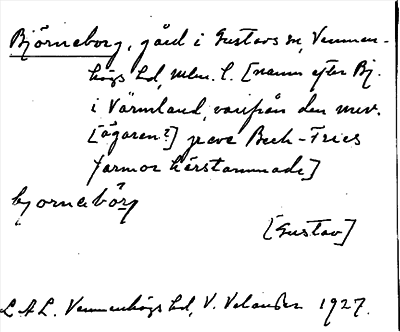 Björneborg, gård i Gustavs sn, Vemmen-
högs hd, Mlm. l. [namn efter Bj.
i Värmland, varifrån den nuv.
[ägaren?] greve Beck-Friis
farmor härstammade]
bjornebörg
[Gustav]
L.A.L. Vemmenhögs hd, V. Velander 1927.